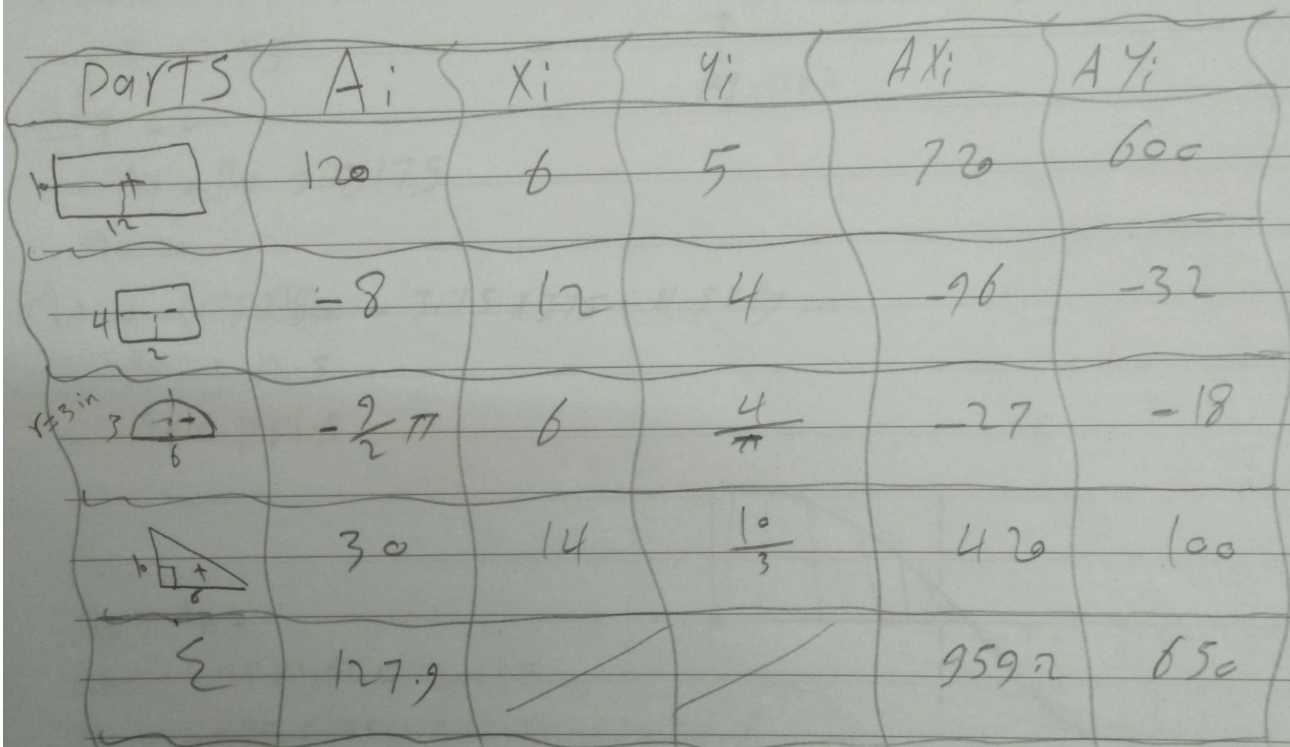 Parts Ai Xi Yi AXi AYi
10 12 120 6 5 720 600
4 2 -8 12 4 -96 -32
r=3 in 3 6 -9/2 π 6 4/π -27 -18
10 6 30 14 10/3 420 100
Σ 127.9 959.2 650